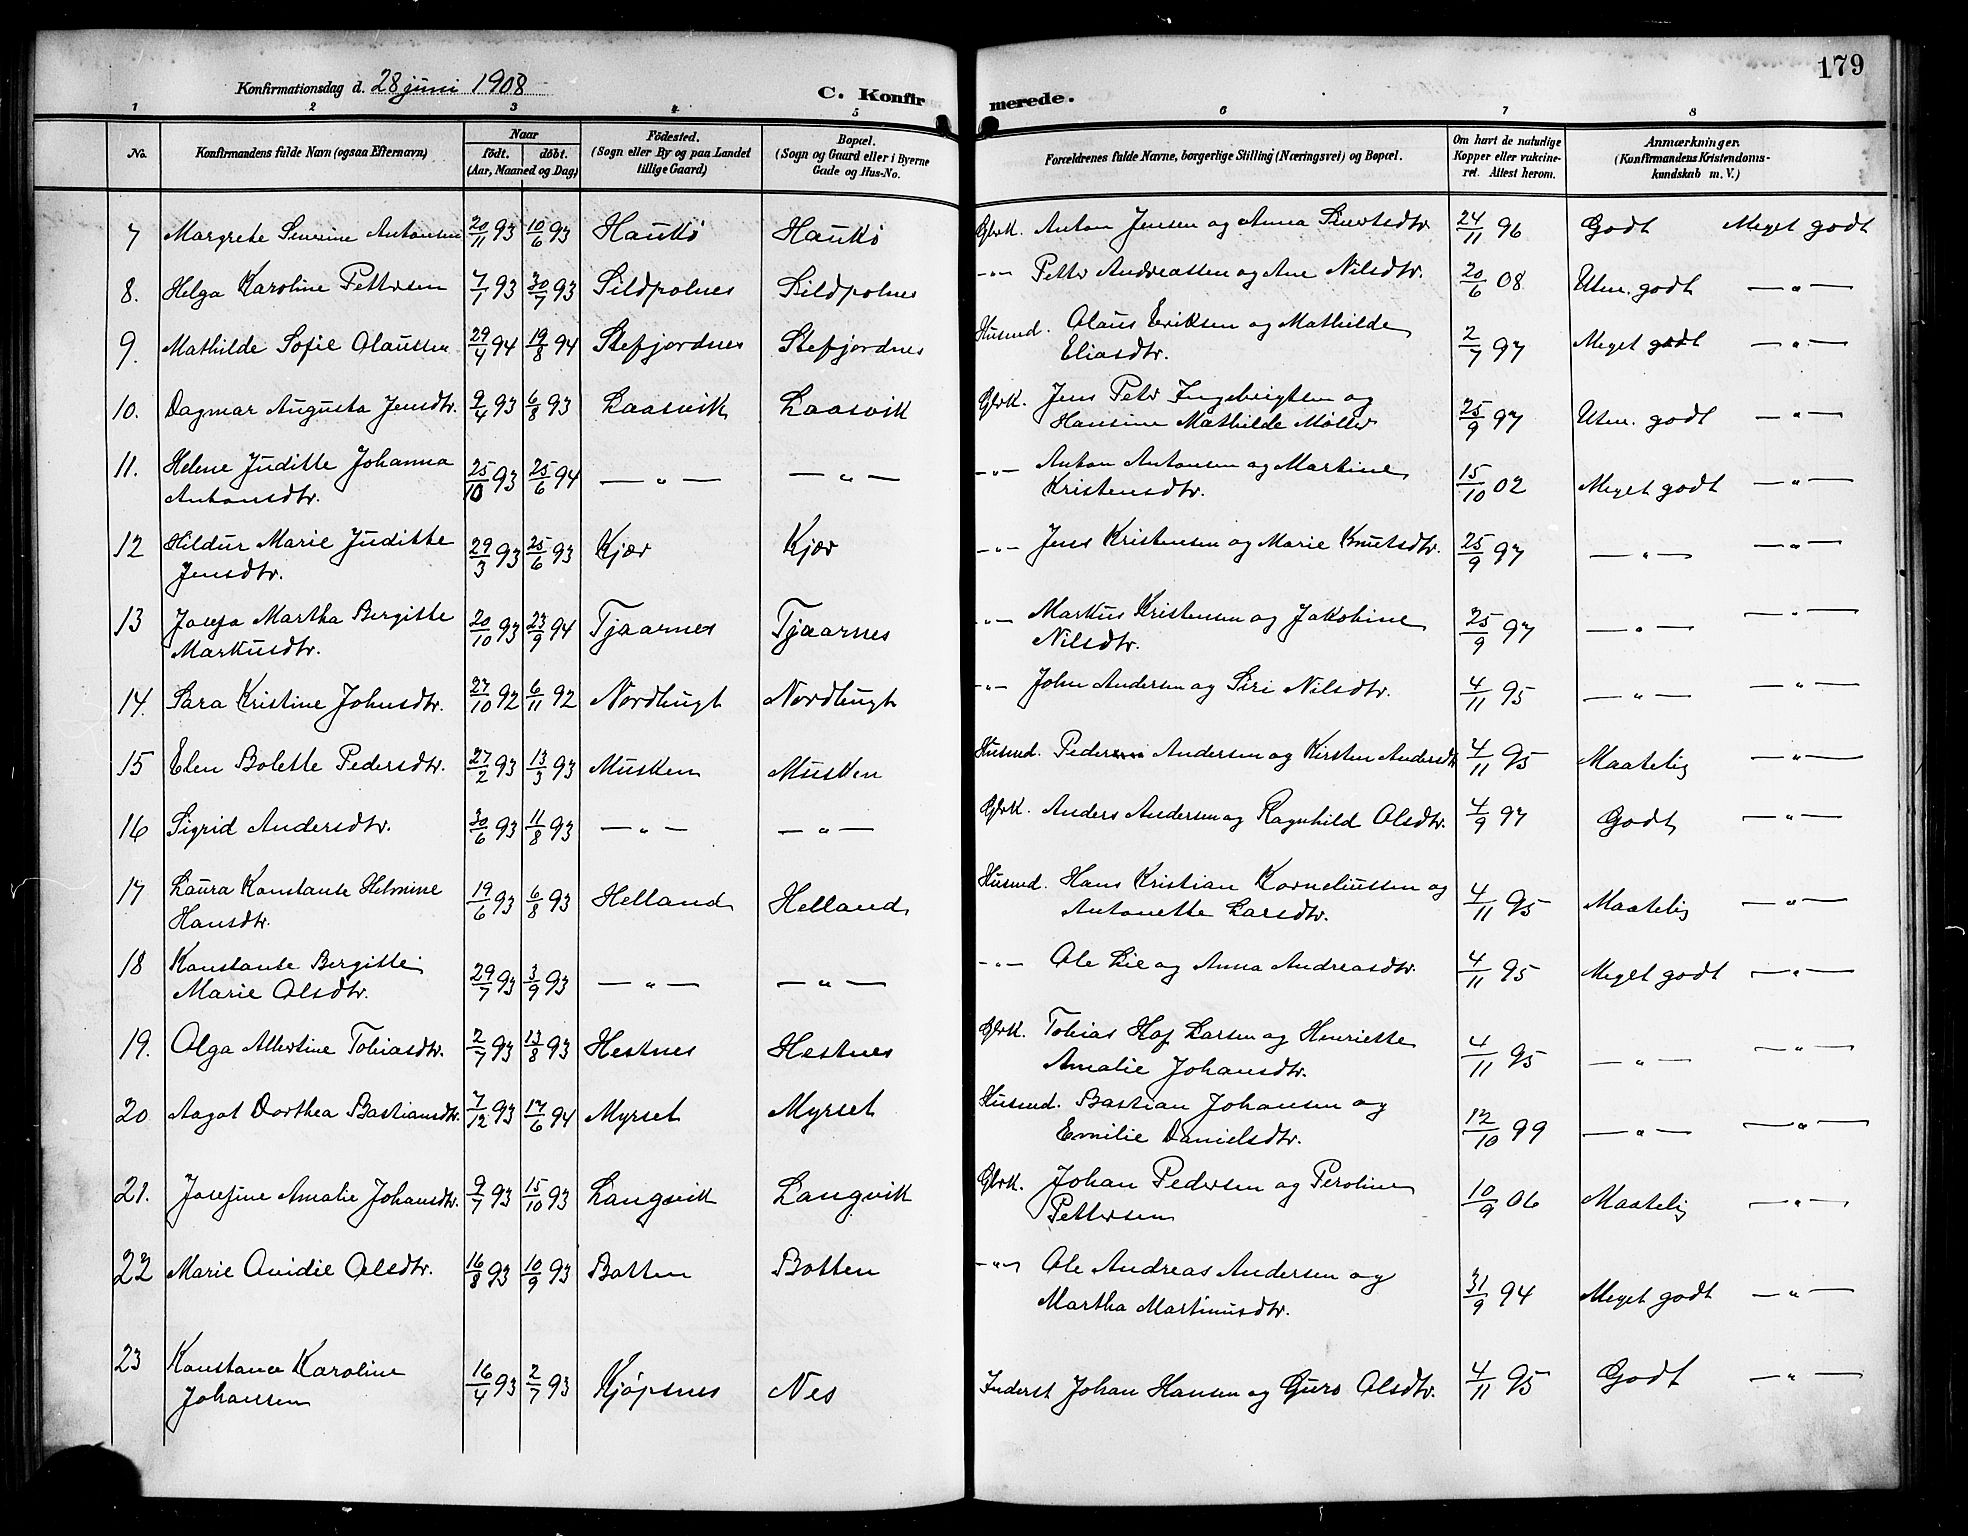 179
Konfirmationsdag d. 28 juni 1908
C. Konfirmerede.
1 2 3 4 5 6 7 8
No. Konfirmandens fulde Navn (ogsaa Efternavn) Naar født. døbt. (Aar, Maaned og Dag) Fødested. (Sogn eller By og paa Landet tillige Gaard) Bopæl. (Sogn og Gaard eller i Byerne Gade og Hus-No. Forældrenes fulde Navne, borgerlige Stilling (Næringsvei) og Bopæl. Om havt de naturlige Kopper eller vakcineret. Attest herom. Anmærkninger. (Konfirmandens Kristendomskundskab m. V.)
7 Margrete Severine Antonsen 20/11 93 10/6 93 Haukø Haukø Gbrk. Anton Jensen og Anna Sivertsdtr. 24/11 96 Godt Meget godt
8. Helga Karoline Pettersen 7/1 93 30/7 93 Sildpolnes Sildpolnes -"- Petter Andreassen og Ane Nilsdtr. 20/6 08 Utm. godt -"-
9. Mathilde Sofie Olaussen 29/4 94 19/8 94 Stefjordnes Stefjordnes Husmd. Olaus Eriksen og Mathilde
Eliasdtr. 2/7 97 Meget godt -"-
10. Dagmar Augusta Jensdtr. 9/4 93 6/8 93 Laasvik Laasvik Gbrk. Jens Peter Ingebrigtsen og
Hansine Mathilde Møller 25/9 97 Utm. godt -"-
11. Helene Juditte Johanna
Antonsdtr. 25/10 93 25/6 94 -"- -"- -"- Anton Antonsen og Martine
Kristensdtr. 15/10 02 Meget godt -"-
12 Hildur Marie Juditte
Jensdtr. 29/3 93 25/6 93 Kjær Kjær -"- Jens Kristensen og Marie Knutsdtr. 25/9 97 -"- -"-
13 Josefa Martha Bergitte
Markusdtr. 20/10 93 23/9 94 Tjaarnes Tjaarnes -"- Markus Kristensen og Jakobine
Nilsdtr. 25/9 97 -"- -"-
14. Sara Kristine Johnsdtr. 27/10 92 6/11 92 Nordbugt Nordbugt -"- John Andersen og Siri Nilsdtr. 4/11 95 -"- -"-
15 Elen Bolette Pedersdtr. 27/2 93 13/3 93 Musken Musken Husmd. Peder Andersen og Kirsten Andersdtr 4/11 95 Maatelig -"-
16 Sigrid Andersdtr. 30/6 93 11/8 93 -"- -"- Gbrk. Anders Andersen og Ragnhild Olsdtr. 4/9 97 Godt -"-
17 Laura Konstante Helmine
Hansdtr. 19/6 93 6/8 93 Helland Helland Husmd. Hans Kristian Korneliussen og
Antonette Larsdtr. 4/11 95 Maatelig -"-
18 Konstante Bergitte
Marie Olsdtr. 29/7 93 3/9 93 -"- -"- -"- Ole Lie og Anna Andreasdtr. 4/11 95 Meget godt -"-
19. Olga Albertine Tobiasdtr. 2/7 93 13/8 93 Hestnes Hestnes Gbrk. Tobias Hof Larsen og Henriette
Amalie Johansdtr. 4/11 95 -"- -"-
20 Aagot Dorthea Bastiansdtr. 7/12 93 17/6 94 Myrset Myrset Husmd. Bastian Johansen og
Emilie Danielsdtr. 12/10 99 -"- -"-
21. Josefine Amalie Johansdtr. 9/7 93 15/10 93 Langvik Langvik Gbrk. Johan Pedersen og Peroline
Pettersen 10/9 06 Maatelig -"-
22 Marie Ovidie Olsdtr. 16/8 93 10/9 93 Botten Botten -"- Ole Andreas Andersen og
Martha Martinusdtr. 31/9 94 Meget godt -"-
23 Konstanse Karoline
Johansen 16/4 93 2/7 93 Kjøpsnes Nes Inderst Johan Hansen og Guro Olsdtr. 4/11 95 Godt -"-